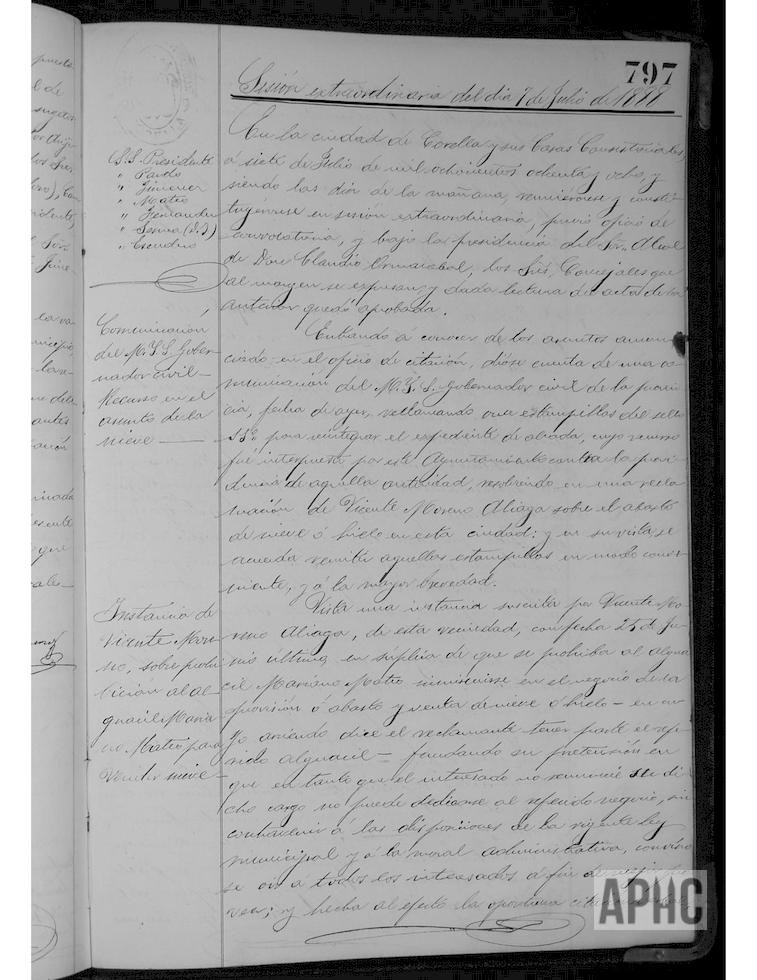 797
Sesión extraordinaria del dia 7 de Julio de 1888
S.S. Presidente
" Pardo
" Jimenez
" Mateo
" Fernandez
" Serna (D. J)
" Escudero
En la ciudad de Corella y sus Casas Consistoriales,
á siete de Julio de mil ochocientos ochenta y ocho, y
siendo las diez de la mañana, reunieronse y consti-
tuyéronse en sesión extraordinaria, previo oficio de
convocatoria, y bajo la presidencia del Sr. Alcal
de Don Claudio los Sres. Concejales que
al margen se expresan, y dada lectura del acta de la
anterior quedó aprobada.
Comunicación
del M. Y. S. Gober-
nador civil-
Recurso en el
asunto de la
nieve
Entrando á conocer de los asuntos anun-
ciados en el oficio de citación, dióse cuenta de una co-
municación del M. Y. S. Gobernador civil de la provin-
cia, fecha de ayer, reclamando once estampillas del sello
11º para reintegrar el expediente de alzada, cuyo recurso
fué interpuesto por este Ayuntamiento contra la provi-
dencia de aquella autoridad, resolviendo en una recla-
mación de Vicente Moreno Aliaga sobre el abasto
de nieve ó hielo en esta ciudad; y en su vista, se
acuerda remitir aquellas estampillas en modo conve-
niente, y á la mayor brevedad.
Instancia de
Vicente More-
no, sobre prohi-
bición al al-
guacil Maria
no Mateo para
vender nieve-
Vista una instancia suscrita por Vicente Mo-
reno Aliaga, de esta vecindad, con fecha 25 de Ju-
nio último, en súplica de que se prohiba al algua-
cil Mariano Mateo inmiscuirse en el negocio de la
provisión ó abasto y venta de nieve ó hielo - en cu-
yo arriendo dice el reclamante tener parte el refe-
rido alguacil - fundando su pretensión en
que en tanto que el interesado no renuncie su di-
cho cargo no puede dedicarse al referido negocio, sin
contravenir á las disposiciones de la vigente ley
municipal y á la moral administrativa, convino
se oir á todos los interesados á fin de mejor pro-
veer; y hecha al efecto la oportuna
APHC